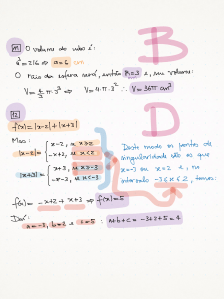 B
11 O volume do cubo é:
a³ = 216 ⇒ a = 6 cm
O raio da esfera será, então R = 3 e, seu volume:
V = 4/3 π·3³ ⇒ V = 4·π·3² ∴ V = 36π cm³
D
12
f(x) = |x-2| + |x+3|
Mas:
|x-2| = { x-2, se x≥2
-x+2, se x<2
|x+3| = { x+3, se x≥-3
-x-3, se x<-3
Deste modo os pontos de
singularidade são os que
x=-3 ou x=2 e, no
intervalo -3≤x≤2, temos:
f(x) = -x+2 + x+3 ⇒ f(x) = 5
Daí:
a=-3, b=2 e c=5 : a+b+c = -3+2+5 = 4